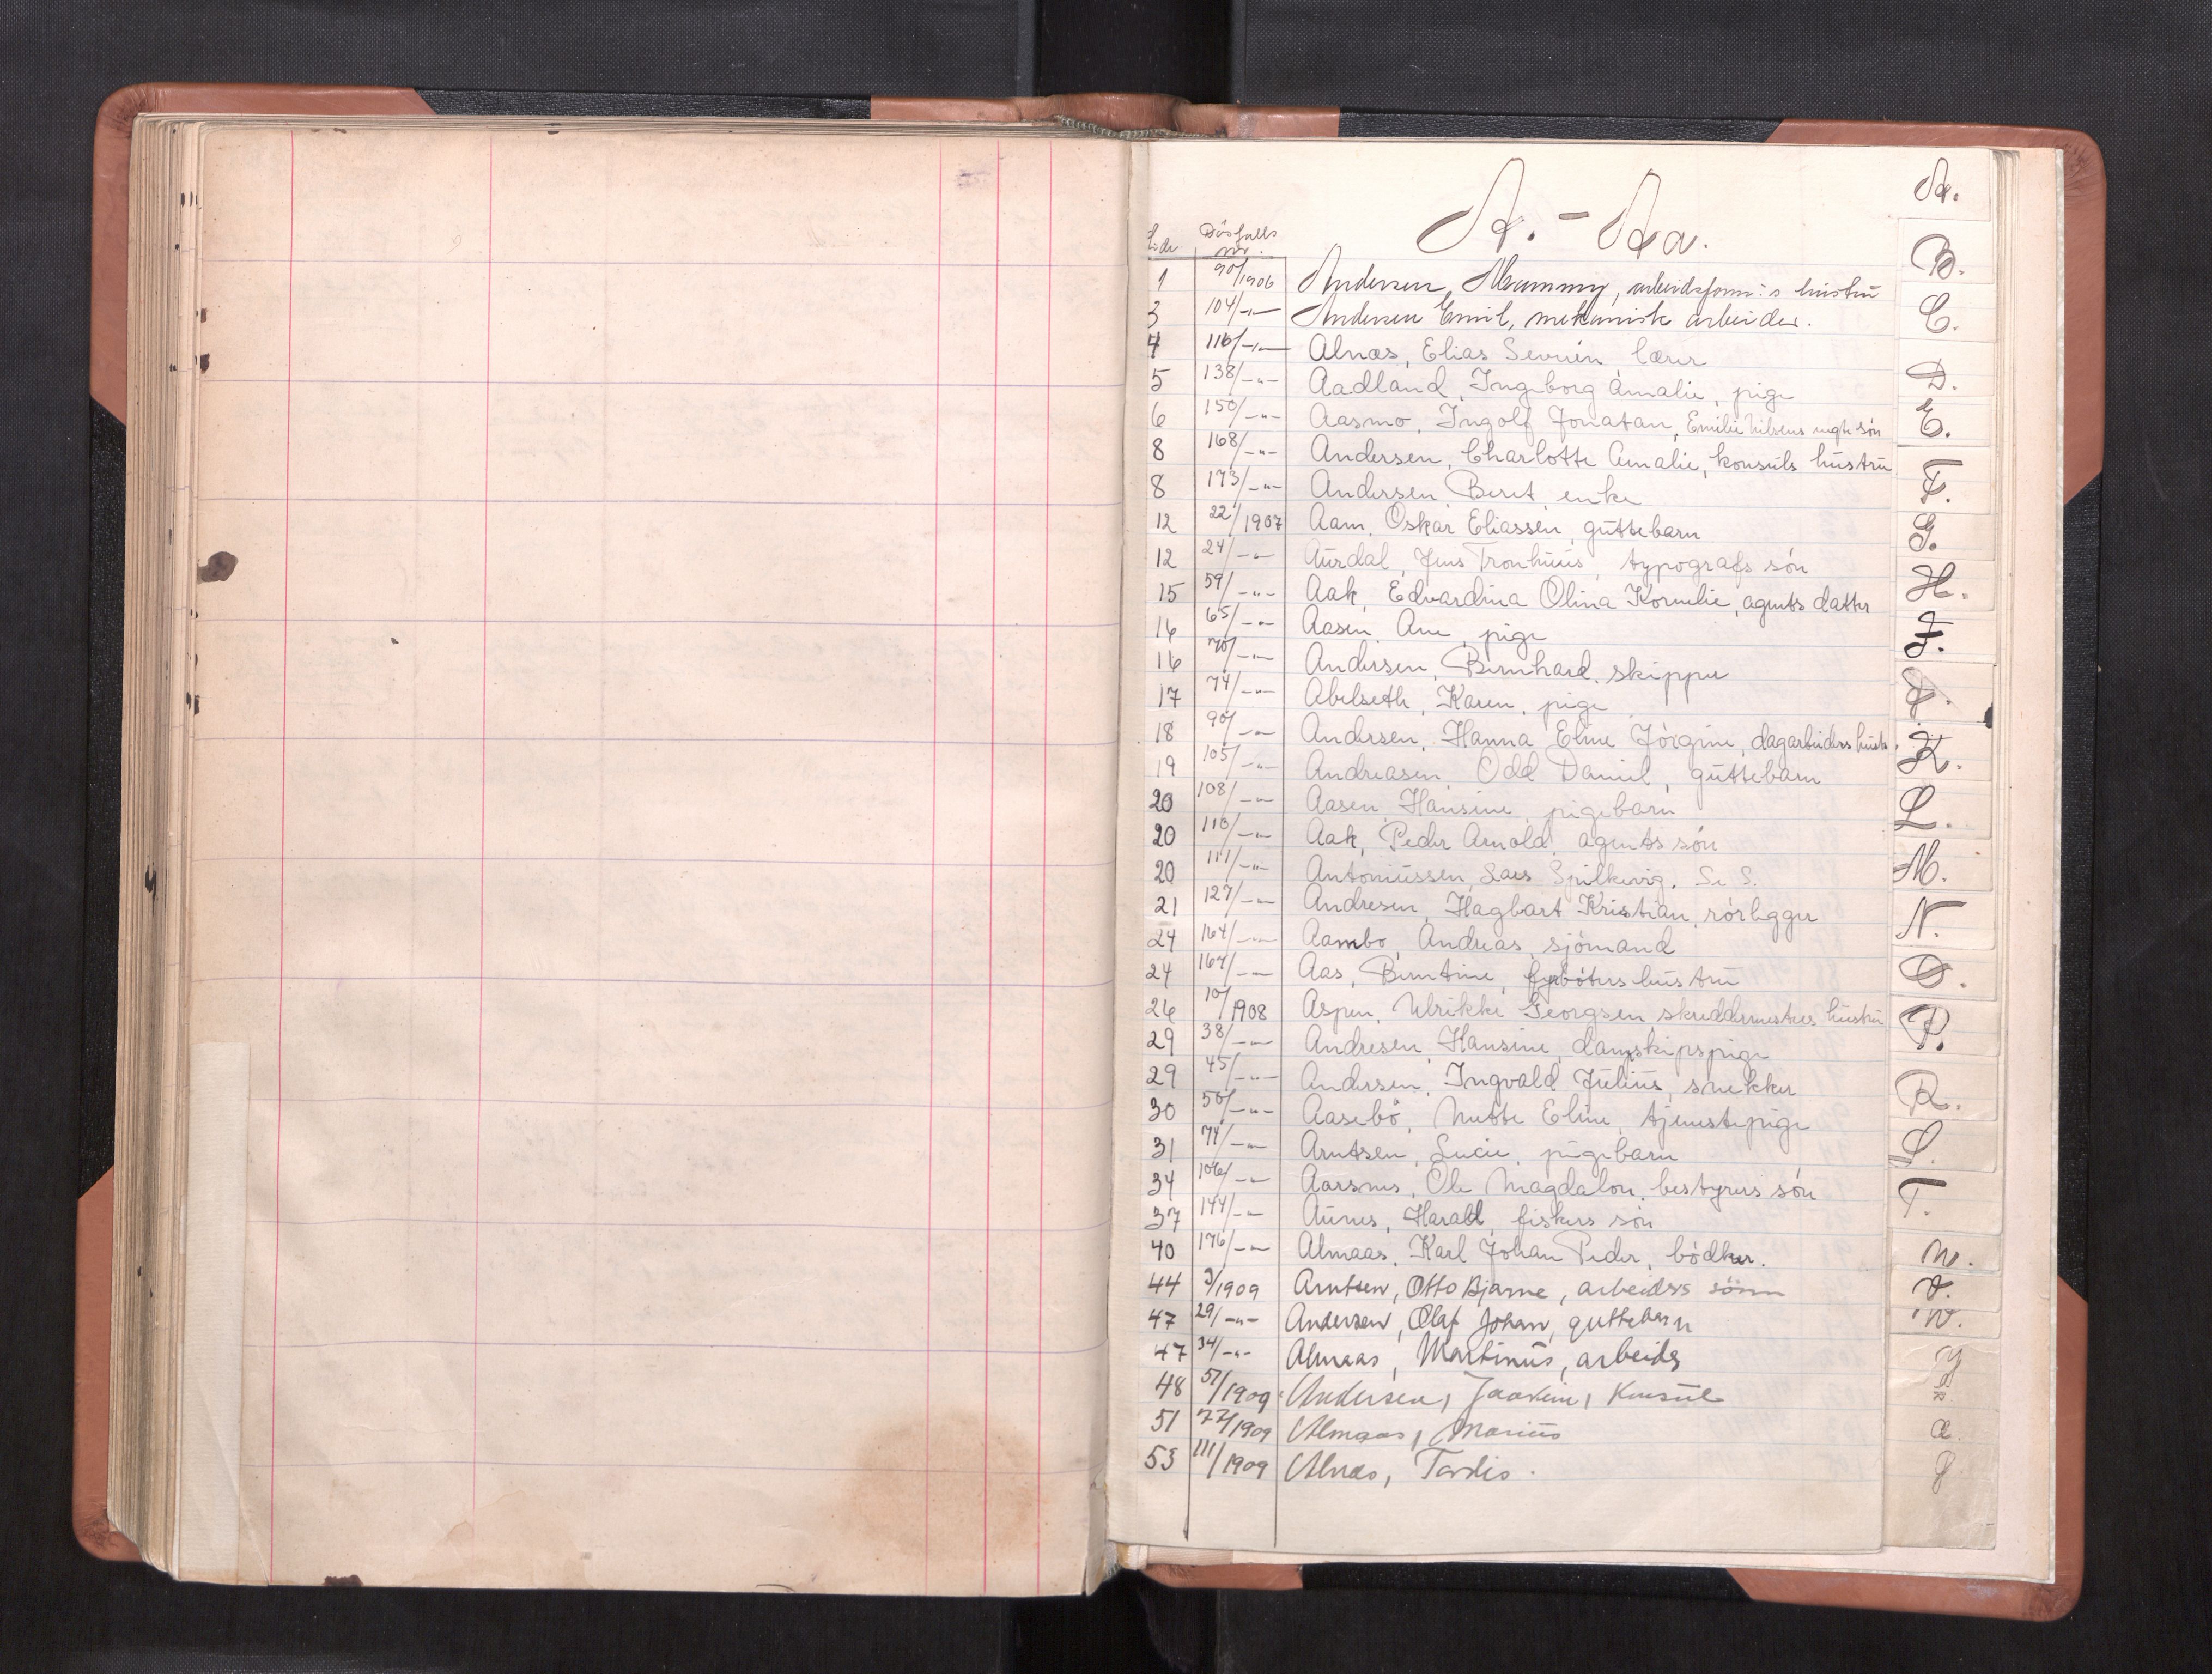 A. - Aa.
Side Dösfalls nr.
1 90/1906 Andersen, Mammy, arbeidsform:s hustru
3 104/-"- Andersen Emil, mekanisk arbeider.
4 116/-"- Alnæs, Elias Severin lærer
5 138/-"- Aadland, Ingeborg Amalie, pige
6 150/-"- Aasmo, Ingolf Jonatan, Emilie Nilsens uegte sön
8 168/-"- Andersen, Charlotte Amalie, konsuls hustru
8 173/-"- Andersen Beret, enke
12 22/1907 Aam, Oskar Eliassen, guttebarn
12 24/-"- Aurdal, Jens Tronhuus, typografs sön
15 59/-"- Aak, Edvardina Olina Kornelie, agents datter
16 65/-"- Aasen, Ane, pige
16 70/-"- Andersen, Bernhard, skipper
17 74/-"- Abelseth, Karen, pige
18 90/-"- Andersen, Hanna Eline Jörgine, dagarbeiders hustr.
19 105/-"- Andreasen, Odd Daniel, guttebarn
20 108/-"- Aasen Hansine, pigebarn
20 110/-"- Aak, Peder Arnold, agents sön
20 111/-"- Antoniussen, Lars Spilkevig. Se S.
21 127/-"- Andresen, Hagbart Kristian, rörlegger
24 164/-"- Aambo, Andreas, sjömand
24 167/-"- Aas, Berntine, fyrböters hustru
26 10/1908 Aspen, Ulrikke Georgsen skreddermesters hustru
29 38/-"- Andresen, Hansine, dampskipspige
29 45/-"- Andersen, Ingvald Julius, snekker
30 50/-"- Aasebö, Nette Eline, tjenestepige
31 74/-"- Arntsen, Lucie, pigebarn
34 106/-"- Aarsnes, Ole Magdalon, bestyrers sön
37 144/-"- Aunes, Harald, fiskers sön
40 176/-"- Almaas, Karl Johan Peder, bödker.
44 3/1909 Arntsen, Otto Bjarne, arbeiders sönn
47 29/-"- Andersen, Olaf Johan, guttebarn
47 34/-"- Almaas, Martinus, arbeider
48 51/1909 Andersen, Joakim, Konsul
51 77/1909 Almaas, Marius
53 111/1909 Alnæs, Tordis.
A.
B.
C.
D.
E.
F.
G.
H.
I.
J.
K.
L.
M.
N.
O.
P.
R.
S.
T.
U.
V.
W.
Y
Z
Æ
Ø